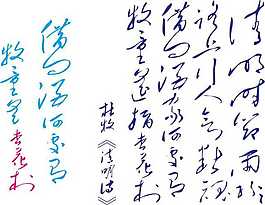 清明时节雨纷
纷路上行人欲断魂
借问酒家何处有
牧童遥指杏花村
杜牧《清明诗》
借问酒家何处有
牧童遥指杏花村